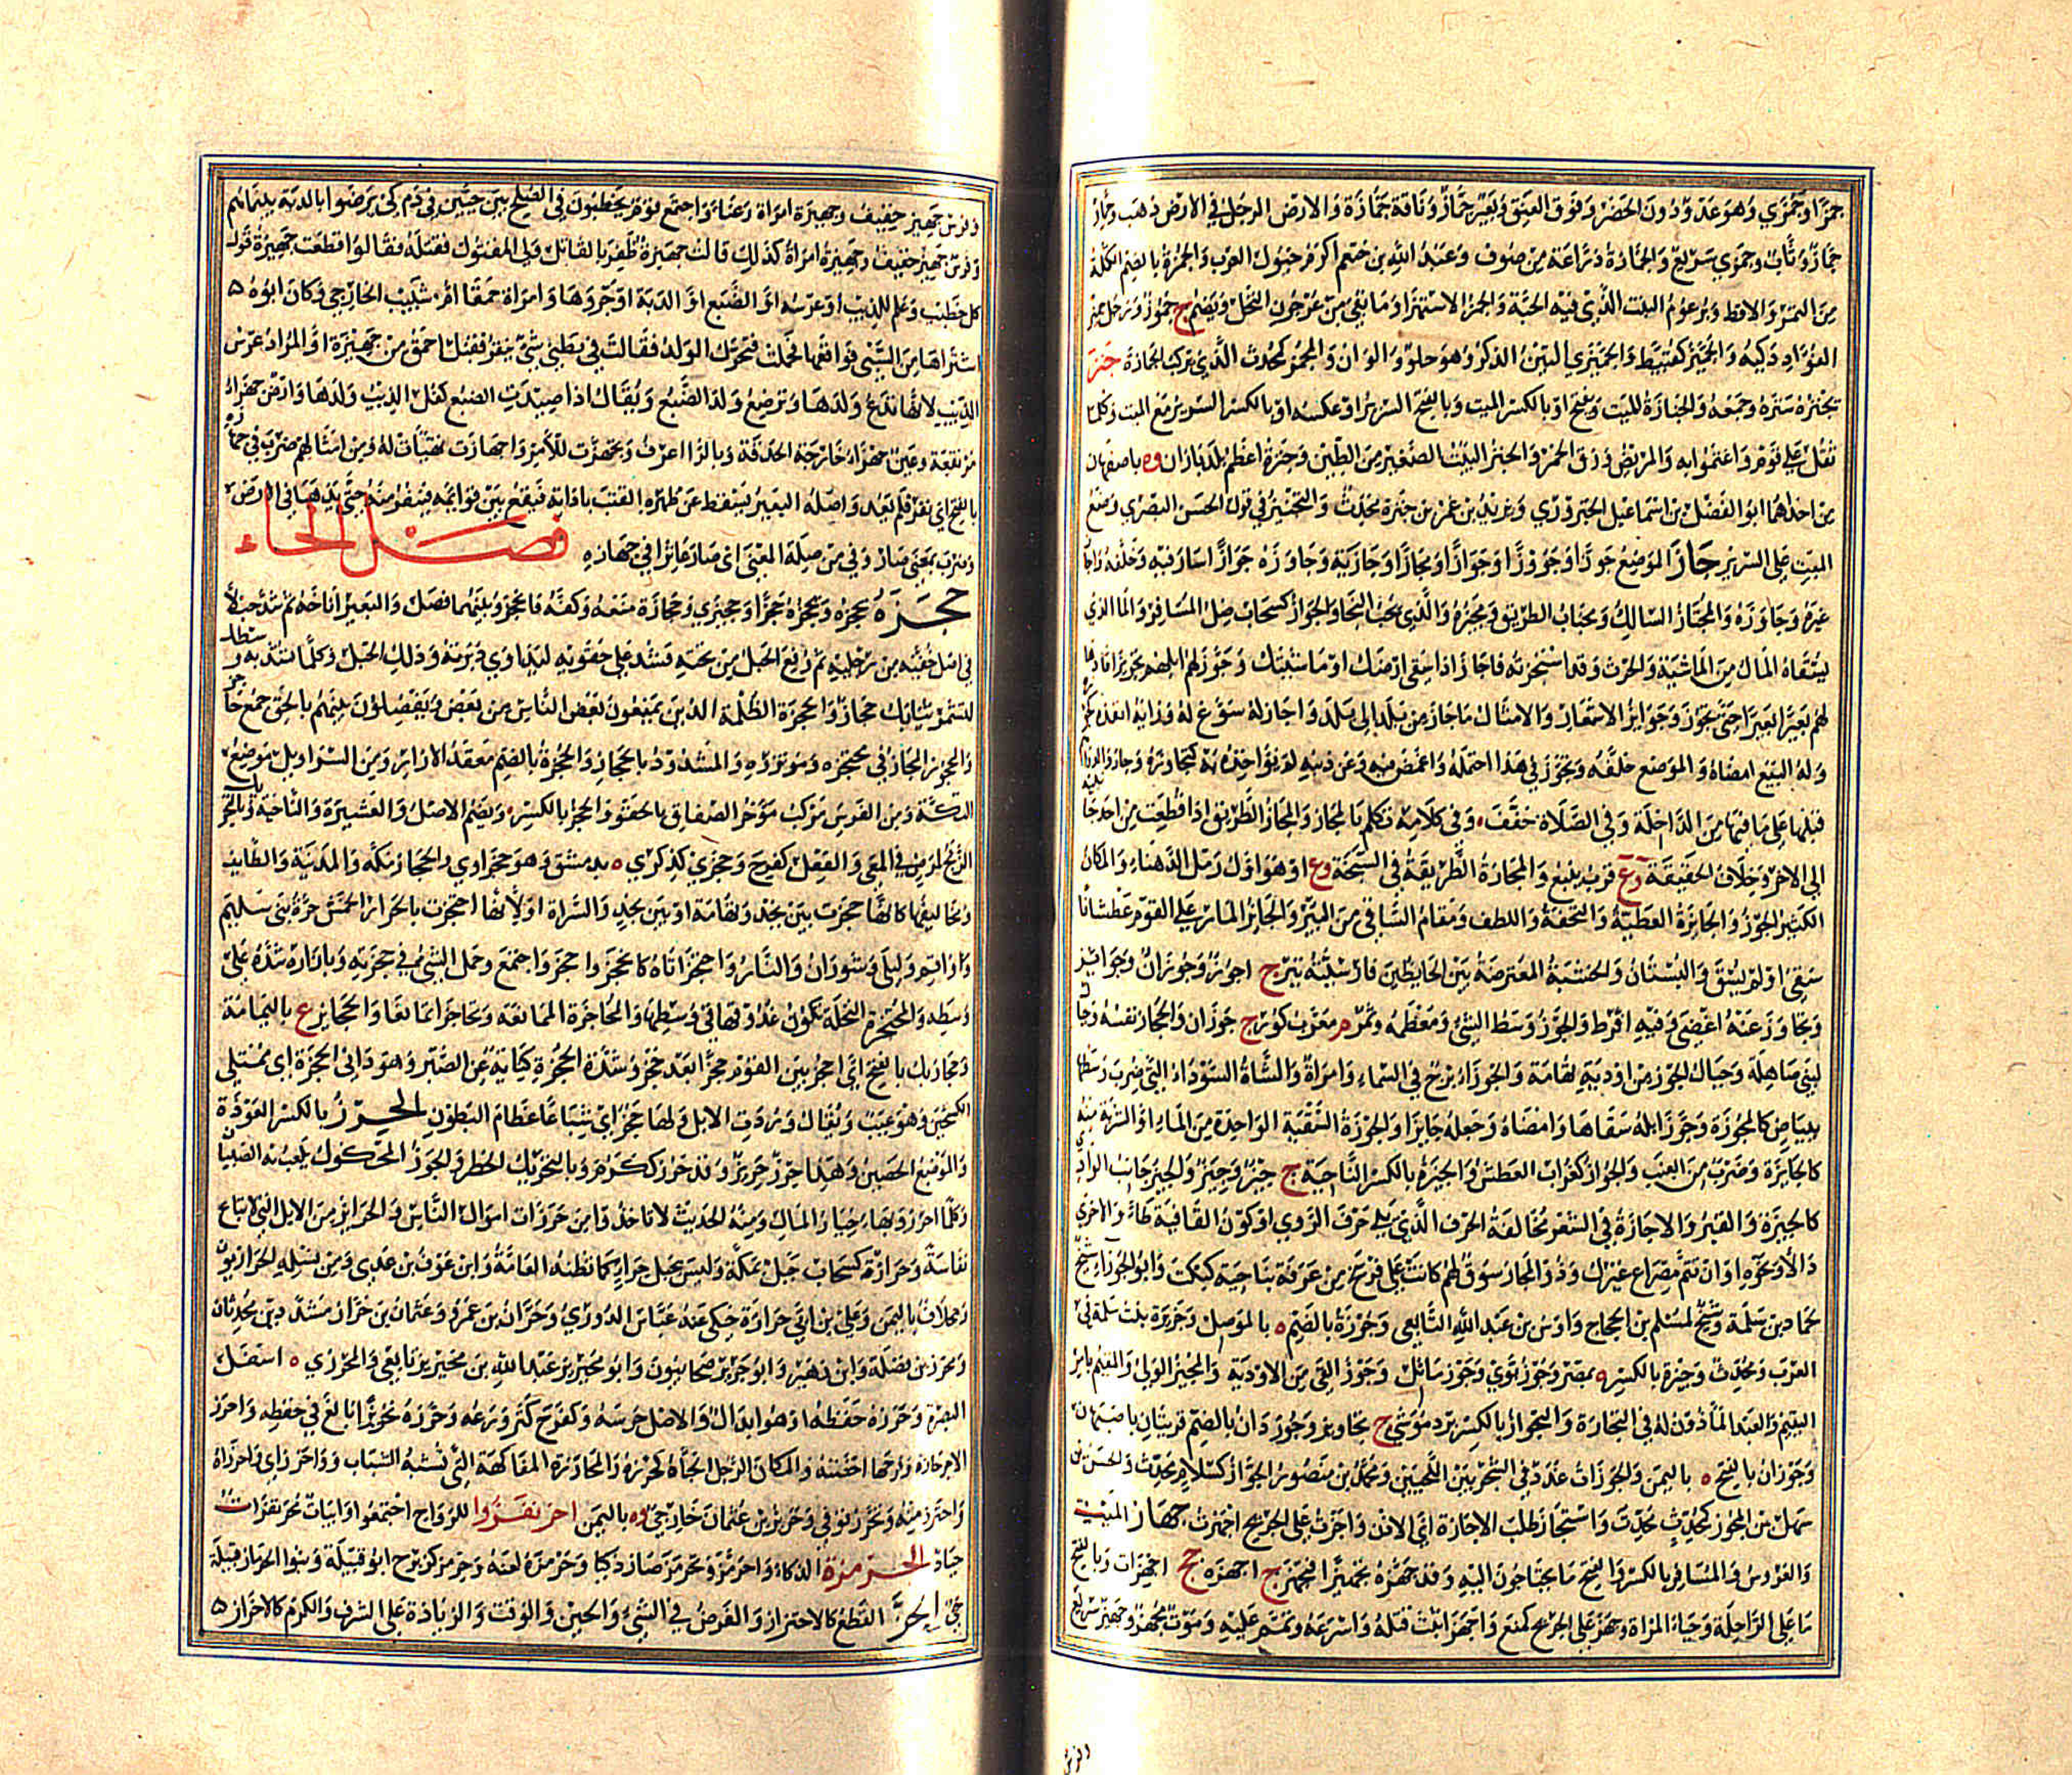 جمزا وجمزى وهو عدو دون الحضر وفوق العنق وبعير جماز وناقة جمازة والارض الرجل في الارض ذهب وحمار
جماز وثاب وجمزى سريع والجمازة دراعة من صوف وعبد الله بن ختم اكرم خيول العرب والجمزة بالضم الكتلة
من التمر والاقط وبرعوم النبت الذي فيه الحبة والجمز الاستهزاء وما بقي من عرجون النخل ويضم ج جموز ورجل جميز
الفؤاد ذكيه والجميز كقبيط والجميزى التين الذكر وهو حلو والوان والمجمز كمحدث الذي يركب الجمازة جنز
يجنزه ستره وجمعه والجنازة للميت ويفتح او بالكسر الميت وبالفتح السرير او عكسه او بالكسر السرير مع الميت وكلما
ثقل على قوم واغتموا به والمريض وزق الخمر والجنز البيت الصغير من الطين وجنزة اعظم بلد باران وه باصفهان
من احداهما ابو الفضل بن اسماعيل الجنزوي ويزيد بن عمر بن جنزة محدث والتجنيز في قول الحسن البصري وضع
الميت على السرير جاز الموضع جوزا وجؤوزا وجوازا ومجازا وجاز به وجاوزه جوازا سار فيه وخلفه واجاز
غيره وجاوزه والمجتاز السالك ومجتاب الطريق ومجيزه والذي يحب النجاء والجواز كسحاب صك المسافر والماء الذي
يسقاه المال من الماشية والحرث وقد استجزته فاجاز اذا سقى ارضك او ماشيتك وجوز لهم ابلهم تجويزا قادها
لهم بعيرا بعيرا حتى تجوز وجوائز الاشعار والامثال ما جاز من بلد الى بلد واجاز له سوغ له ورايه انفذه كجوزه
وله البيع امضاه والموضع خلفه وتجوز في هذا احتمله واغمض فيه وعن ذنبه لم يؤاخذه به كتجاوز وجاوز والدراهم
قبلها على ما فيها من الداخلة وفي الصلاة خفف وفي كلامه تكلم بالمجاز والمجاز الطريق اذا قطعت من احد جانبيه
الى الاخر وخلاف الحقيقة وع قرب ينبع والمجازة الطريقة في السبخة وع او هو اول رمل الدهناء والمكان
الكثير الجوز والجائزة العطية والتحفة واللطف ومقام الساقي من البئر والجائز المار على القوم عطشانا
سقي او لم يسق والبستان والخشبة المعترضة بين الحائطين فارسيته تير ج اجوزة وجوزان وجوائز
وتجاوز عنه اغضى وفيه افرط والجوز وسط الشئ ومعظمه وثمر م معرب كوز ج جوزان والحجاز نفسه وجبال
لبني صاهلة وجبال الجوز من اودية تهامة والجوزاء برج في السماء وامراة والشاة السوداء التي ضرب وسطها
ببياض كالمجوزة وجوز ابله سقاها وامضاه وجعله جائزا والجوزة السقية الواحدة من الماء او الشربة منه
كالجائزة وضرب من العنب والجواز كغراب العطش والجيزة بالكسر الناحية ج جيز وجيز والجيز جانب الوادي
كالجيزة والقبر والاجازة في الشعر مخالفة الحرف الذي يلي حرف الروي او كون القافية طاء والاخرى
دالا ونحوه او ان تتم مصراع غيرك وذو المجاز سوق لهم كانت على فرسخ من عرفة بناحية كبكب وابو الجوزاء شيخ
حماد بن سلمة وشيخ لمسلم بن الحجاج واوس بن عبد الله التابعي وجوزة بالضم ه بالموصل وجويزة بنت سلمة في
العرب ومحدث وجيزة بالكسر ه بمصر وجوز بوى وجوز ماثل وجوز القئ من الادوية والمجيز الولي والقيم بامر
اليتيم والعبد الماذون له في التجارة والتجواز بالكسر برد موشى ج تجاويز وجوزدان بالضم قريتان باصبهان
وجوزان بالفتح ه باليمن والجوزات غدد في الشجر بين اللحيين ومحمد بن منصور الجواز كسلام محدث والحسن بن
سهل بن المجوز كمحدث محدث واستجاز طلب الاجازة اي الاذن واجزت على الجريح اجهزت جهاز الميت
والعروس والمسافر بالكسر والفتح ما يحتاجون اليه وقد جهزه تجهيزا فتجهز ج اجهزة جج اجهزات وبالفتح
ما على الراحلة وحياء المراة وجهز على الجريح كمنع واجهز اثبت قتله واسرعه وتمم عليه وموت مجهز وجهيز سريع
وفرس جهيز خفيف وجهيزة امراة رعناء واجتمع قوم يخطبون في الصلح بين حيين في دم كي يرضوا بالدية بينما هم
وفرس جهيز خفيف وجهيزة امراة كذلك قالت جهيزة ظفر بالقاتل ولي المقتول فقتله فقالوا قطعت جهيزة قول
كل خطيب وعلم للذئب او عرسه او الضبع او الدبة او جروها وامراة حمقا ام شبيب الخارجي وكان ابوه
اشتراها من السبي فواقعها فحملت فتحرك الولد فقالت في بطني شئ ينقز فقيل احمق من جهيزة او المراد عرس
الذئب لانها تدع ولدها وترضع ولد الضبع ويقال اذا صيدت الضبع كفل الذئب ولدها وارض جهزاء
مرتفعة وعين جهزاء خارجة الحدقة وبالراء اعرف وتجهزت للامر واجهازت تهيات له ومن امثالهم ضرب في جهازه
بالفتح اي نفر فلم يعد واصله البعير يسقط عن ظهره القتب باداته فيقع بين قوائمه فينفر منه حتى يذهب في الارض
وضرب بمعنى صار وفي من صلة المعنى اي صار عاثرا في جهازه فصل الحاء
حجزه يحجزه ويحجزه حجزا وحجيزى وحجازة منعه وكفه فانحجز وبينهما فصل والبعير اناخه ثم شد حبلا
في اصل خفيه من رجليه ثم رفع الحبل من تحته فشده على حقويه ليداوي دبرته وذلك الحبل وكلما تشد به وسطك
لتشمر ثيابك حجاز والحجزة الظلمة الذين يمنعون بعض الناس من بعض ويفصلون بينهم بالحق جمع حاجز
والمحجوز المصاب في محتجزه ومؤتزره والمشدود بالحجاز والحجزة بالضم معقد الازار ومن السراويل موضع
التكة ومن الفرس مركب مؤخر الصفاق بالحقو والحجز بالكسر ويضم الاصل والعشيرة والناحية وبالتحريك
الزنج لمرض في المعى والفعل كفرح وحجزى كذكرى ه بدمشق وهو حجزاوي والحجاز مكة والمدينة والطائف
ومخاليفها كانها حجزت بين نجد وتهامة او بين نجد والسراة او لانها احتجزت بالحرار الخمس حرة بني سليم
وواقم وليلى وشوران والنار واحتجز اتاه كانحجز واحجز واجتمع وحمل الشئ في حجزته وبازاره شده على
وسطه والمحتجزة النخلة تكون عذوقها في وسطها والمحاجزة الممانعة وتحاجزا تمانعا والحجائز ع باليمامة
وحجازيك بالفتح اي احجز بين القوم حجزا بعد حجز وشدة الحجزة كناية عن الصبر وهو داني الحجزة اي ممتلئ
الكشحين وهو عيب ويقال وردت الابل ولها حجز اي شباعا عظام البطون الحرز بالكسر العوذة
والموضع الحصين وهذا حرز حريز وقد حرز ككرم وبالتحريك الخطر والجوز المحكوك يلعب به الصبيان
وكلما احرز وبهاء خيار المال ومنه الحديث لا تاخذوا من حرزات اموال الناس والحرائز من الابل التي لا تباع
نفاسة وحرازة كسحاب جبل بمكة وليس بجبل حراء كما تظنه العامة وابن عوف بن عدي ومن نسله الحرازيون
ومخلاف باليمن وعلي بن ابي حرازة حكى عنه عباس الدوري وحران بن عمرو وعثمان بن حراز مشددين محدثان
ومحرز بن نضلة وابن زهير وابو حريز صحابيون وابو محيريز عبد الله بن محيريز تابعي والحرزي ه اسفل
البصرة وحرزه حفظه او هو ابدال والاصل حرسه وكفرح كثر ورعه وحرزه تحريزا بالغ في حفظه واحرز
الاجر حازه وفرجها احصنته والمكان الرجل الجاه كحرزه والمحارزة المفاكهة التي تشبه السباب وواحرزاي واحرزاه
واحترز منه وتحرز توقي وحريز بن عثمان خارجي وه باليمن احرنفزوا للرواح اجتمعوا وابيات محرنفزات
جياد الحرمزة الذكاء واحرمز وتحرمز صار ذكيا وحرمزه لعنه وحرمز كزبرج ابو قبيلة وبنوا الحرماز قبيلة
حي الحز القطع كالاحتزاز والفرض في الشئ والحين والوقت والزيادة على الشرف والكرم كالاحزاز